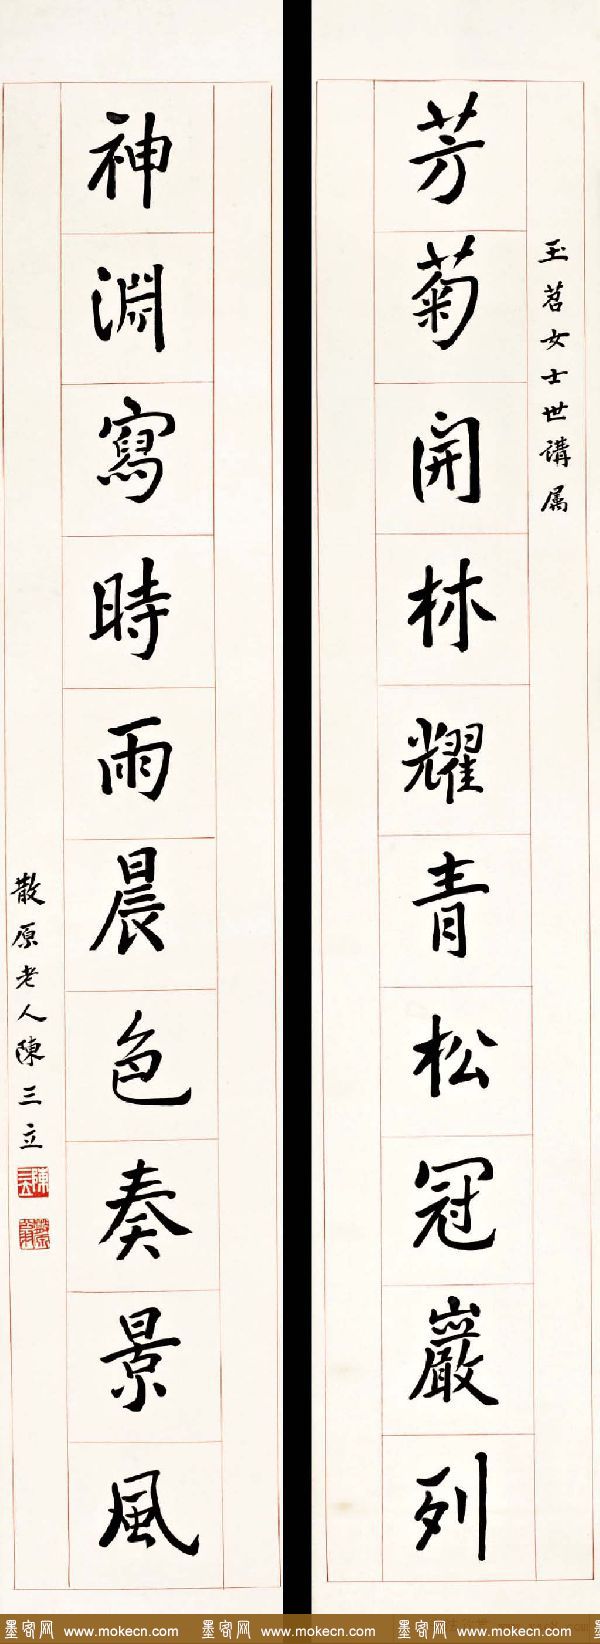 玉茗女士世講属
芳菊開林耀青松冠巖列
神淵寫時雨晨色奏景風
散原老人陳三立
墨客网 www.mokecn.com 墨客网 www.mokecn.com 墨客网 www.mokecn.com